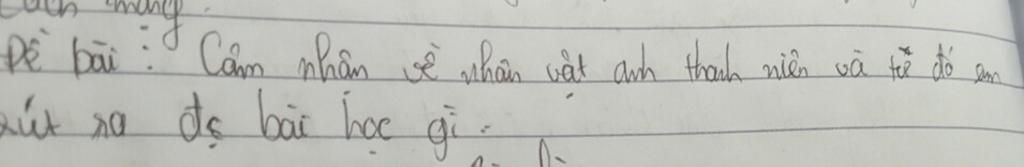 cách mạng.
Đề bài : Cảm nhận về nhân vật anh thanh niên và từ đó em
rút ra đc bài học gì.